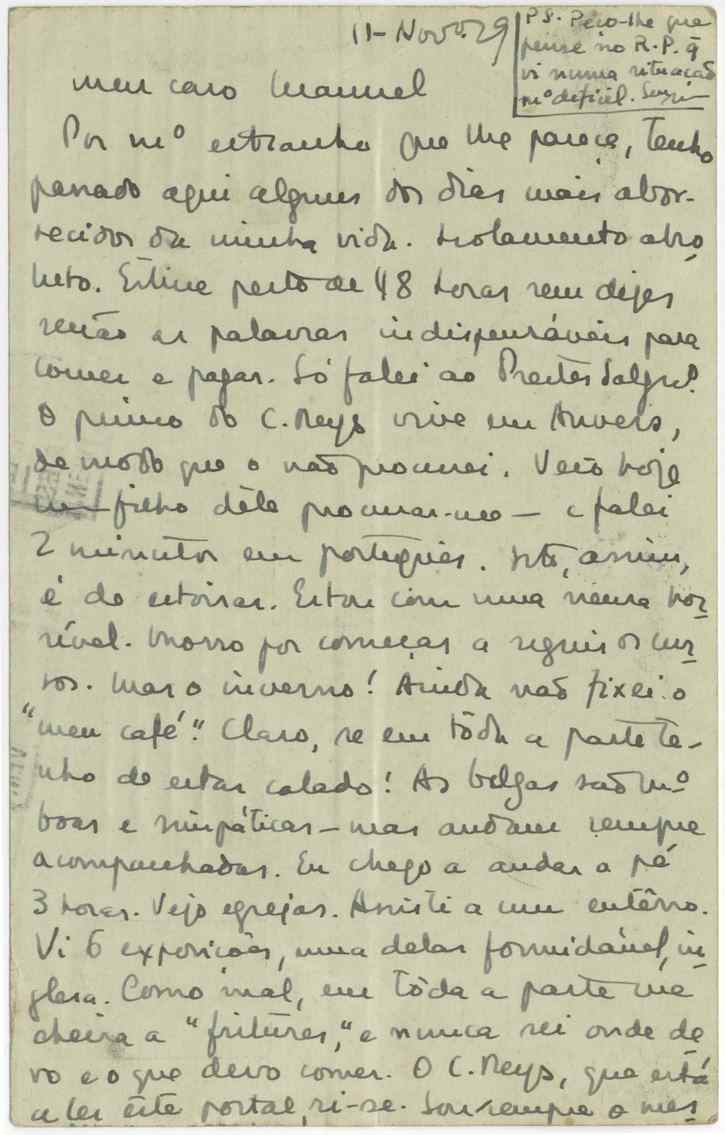 11-Novº. 29
P.S. Peço-lhe que
pense no R.P. q̃
vi numa situação
mº dificil.
Meu caro Manuel
Por mº estranho que lhe pareça, tenho
passado aqui alguns dos dias mais abor-
recidos da minha vida. Isolamento abso-
luto. Estive perto de 48 horas sem dizer
senão as palavras indispensáveis para
comer e pagar. Só falei ao Prestes Salgº.
O primo do C. Reys vive em Anvers,
de modo que o não procurei. Veio hoje
um filho dêle procurar-me — e falei
2 minutos em português. Isto, assim,
é de estoirar. Estou com uma neura hor-
rível. Morro por começar a seguir os cur-
sos. Mas o inverno! Ainda não fixei o
"meu café". Claro, se em tôda a parte te-
nho de estar calado! As belgas são mº
boas e simpáticas — mas andam sempre
acompanhadas. Eu chego a andar a pé
3 horas. Vejo egrejas. Assisti a um entêrro.
Vi 6 exposições, uma delas formidável, in-
glesa. Como mal, em tôda a parte me
cheira a "fritures," e nunca sei onde de-
vo e o que devo comer. O C. Reys, que está
a ler êste postal, ri-se. Sou sempre o mes-